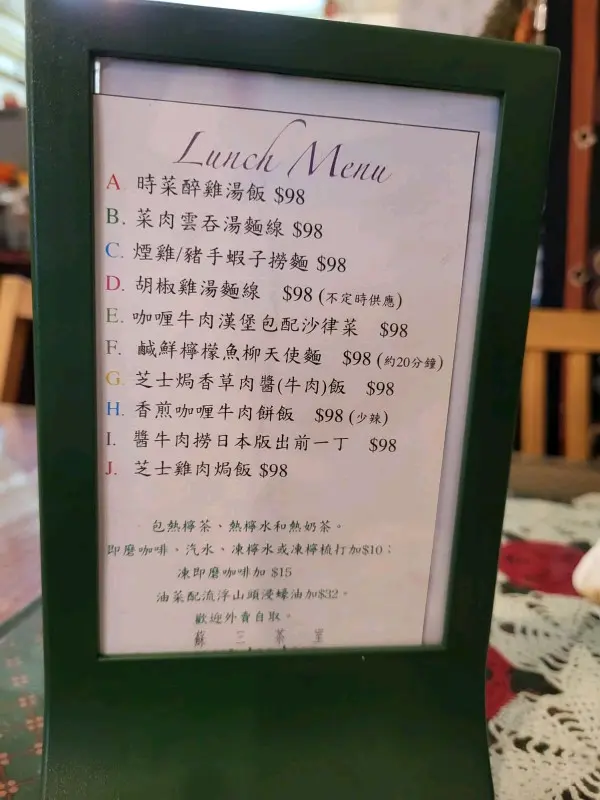 Lunch Menu
A 時菜醉雞湯飯 $98
B. 菜肉雲吞湯麵線 $98
C. 煙雞/豬手蝦子撈麵 $98
D. 胡椒雞湯麵線 $98 (不定時供應)
E. 咖喱牛肉漢堡包配沙律菜 $98
F. 鹹鮮檸檬魚柳天使麵 $98 (約20分鐘)
G. 芝士焗香草肉醬(牛肉)飯 $98
H. 香煎咖喱牛肉餅飯 $98 (少辣)
I. 醬牛肉撈日本版出前一丁 $98
J. 芝士雞肉焗飯 $98
包熱檸茶、熱檸水和熱奶茶。
即磨咖啡，汽水、凍檸水或凍檸梳打加$10；
凍即磨咖啡加 $15
油菜配流浮山頭浸蠔油加$32。
歡迎外賣自取。
蘇 三 茶 室